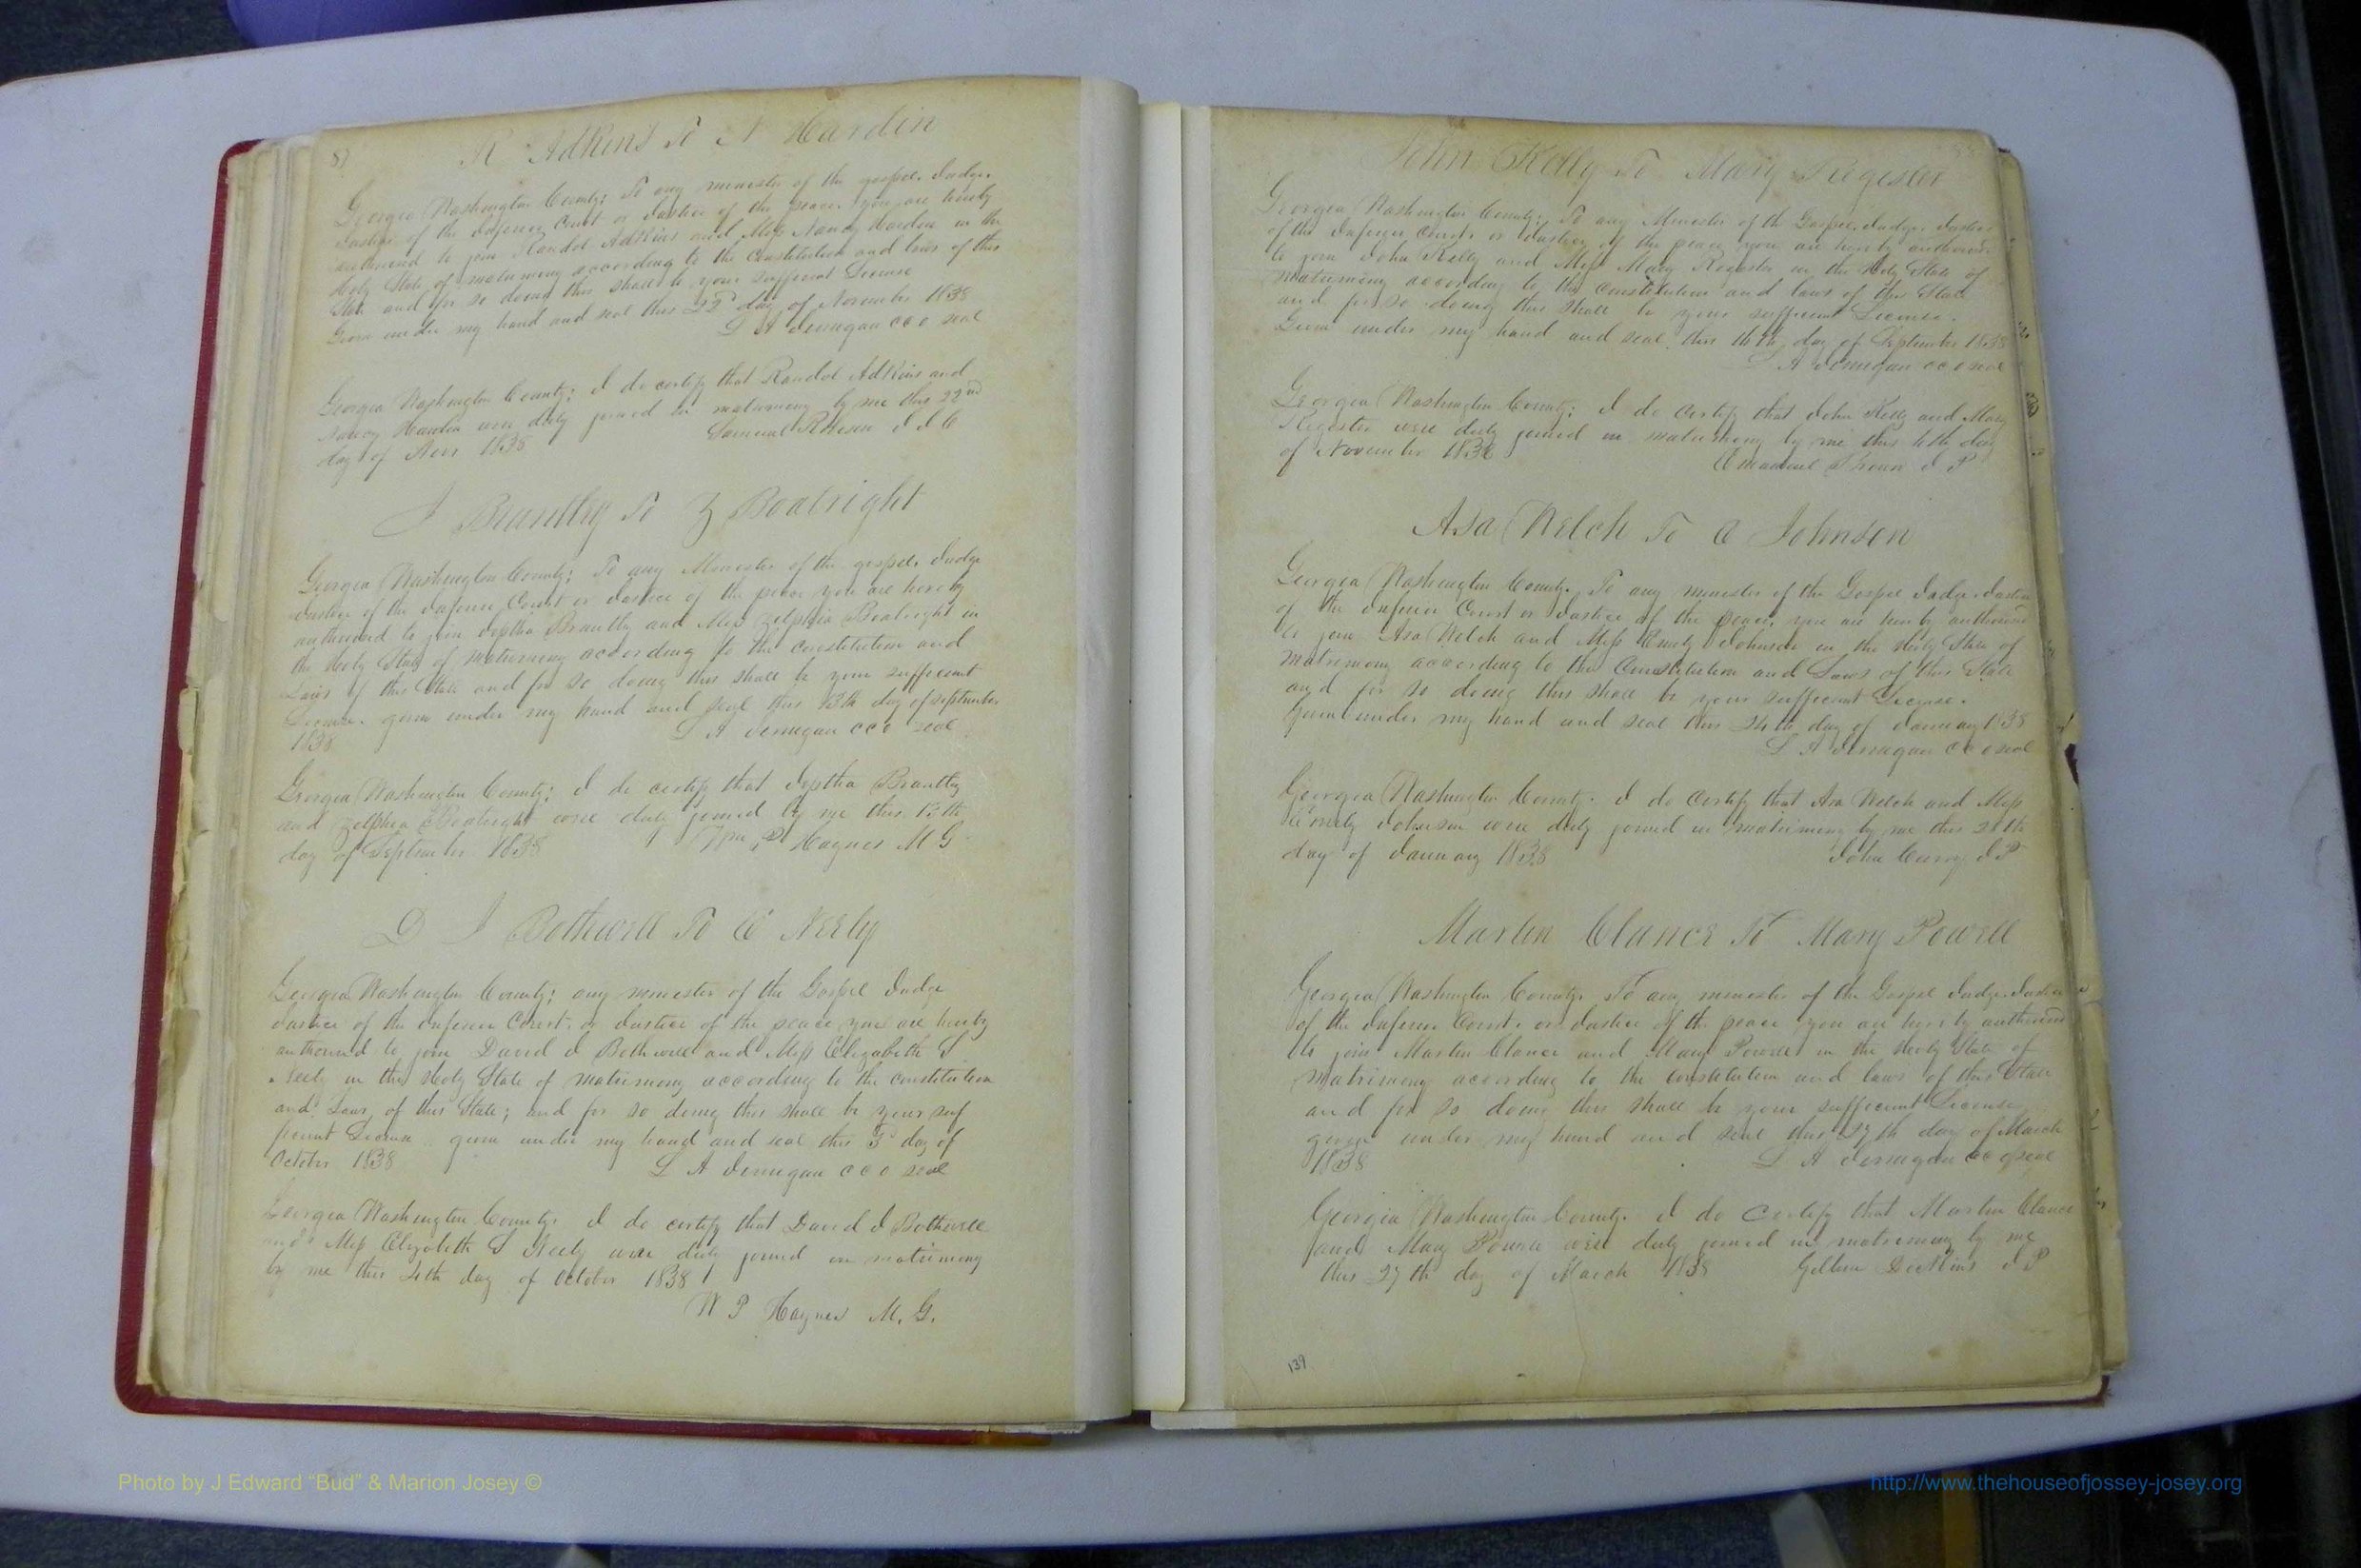 87
R Adkins To N Hardin
Georgia Washington County; To any minister of the gospel, Judge,
Justice of the Inferior Court or Justice of the peace you are hereby
authorised to join Randol Adkins and Miss Nancy Hardin in the
Holy State of matrimony according to the Constitution and laws of this
State and for so doing this shall be your sufficient License
Given under my hand and seal this 22d day of November 1838
L A Jernigan CCO seal
Georgia Washington County; I do certify that Randol Adkins and
Nancy Hardin were duly joined in matrimony by me this 22nd
day of Nov 1838 Samuel Robison J I C
J Brantley To Z Boatright
Georgia Washington County; To any Minister of the gospel, Judge
Justice of the Inferior Court or Justice of the peace you are hereby
authorised to join Jeptha Brantley and Miss Zelphia Boatright in
the Holy State of matrimony according to the constitution and
Laws of this State and for so doing this shall be your sufficient
License. given under my hand and seal this 13th day of September
1838 L A Jernigan CCO seal
Georgia Washington County; I do certify that Jeptha Brantley
and Zelphia Boatright were duly joined by me this 13th
day of September 1838 Haynes M G
D J Bothwell To E Neely
Georgia Washington County; any minister of the Gospel Judge
Justice of the Inferior Court. or Justice of the peace you are hereby
authorised to join David J Bothwell and Miss Elizabeth S
Neely in the Holy State of matrimony according to the constitution
and Laws of this State; and for so doing this shall be your suf
ficient License given under my hand and seal this 3d day of
October 1838 L A Jernigan CCO seal
Georgia Washington County. I do certify that David J Bothwell
and Miss Elizabeth S Neely were duly joined in matrimony
by me this 4th day of October 1838
W P Haynes M. G.
John Kelly To Mary Register
Georgia Washington County; To any Minister of the Gospel, Judge, Justice
of the Inferior Court. or Justice of the peace you are hereby authorised
to join John Kelly and Miss Mary Register in the Holy State of
matrimony according to the constitution and laws of this State
and for so doing this shall be your sufficient License.
Given under my hand and seal this 16th day of September 1838
L A Jernigan CCO seal
Georgia Washington County; I do certify that John Kelly and Mary
Register were duly joined in matrimony by me this day
of November 1838 Emanuel Brown J P
Asa Welch To E Johnson
Georgia Washington County. To any minister of the Gospel Judge. Justice
of the Inferior Court or Justice of the peace, you are hereby authorised
to join Asa Welch and Miss Emily Johnson in the Holy State of
matrimony according to the Constitution and Laws of this State
and for so doing this shall be your sufficient License.
Given under my hand and seal this 24th day of January 1838
L A Jernigan CCO seal
Georgia Washington County. I do certify that Asa Welch and Miss
Emily Johnson were duly joined in matrimony by me this 28th
day of January 1838 John Curry J P
Martin Clance To Mary Powell
Georgia Washington County. To any minister of the Gospel Judge. Justice
of the Inferior Court. or Justice of the peace you are hereby authorised
to join Martin Clance and Mary Powell in the Holy State of
matrimony according to the constitution and laws of this State
and for so doing this shall be your sufficient License
given under my hand and seal this 27th day of March
1838 L A Jernigan CCO seal
Georgia Washington County. I do certify that Martin Clance
and Mary Powell were duly joined in matrimony by me
this 27th day of March 1838 J P
139
Photo by J Edward “Bud” & Marion Josey ©
http://www.thehouseofjossey-josey.org